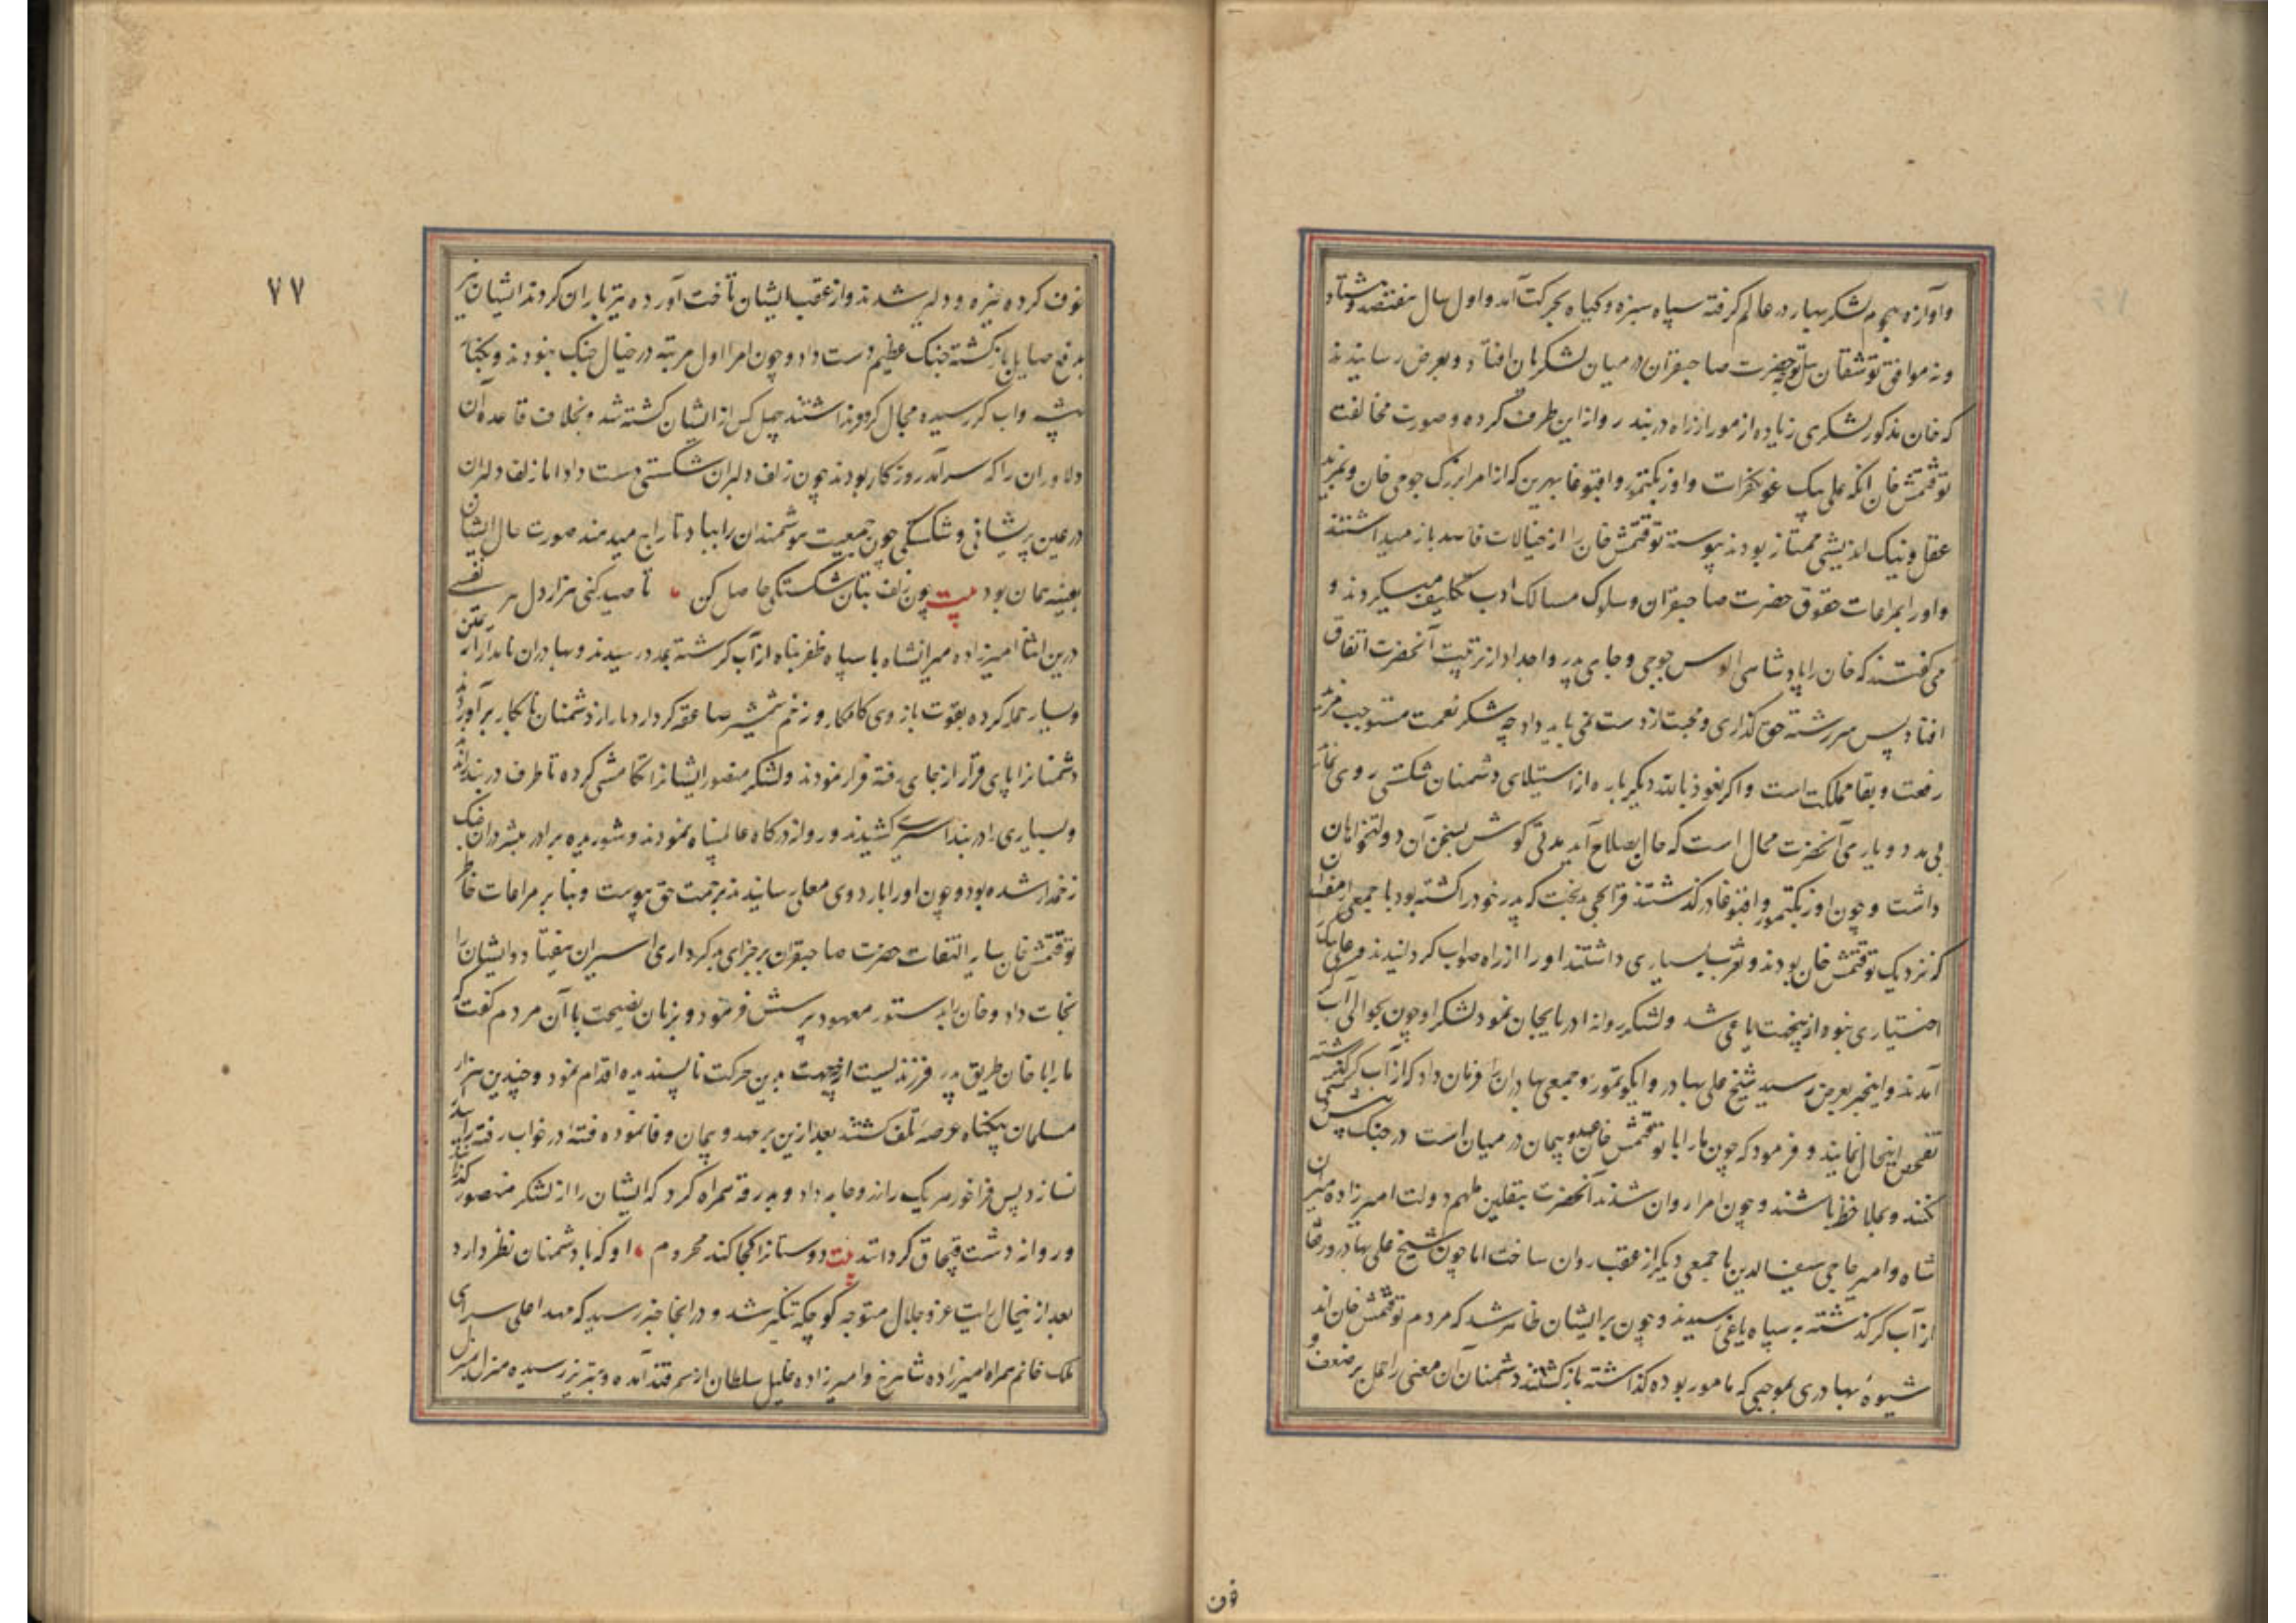 وآوازه هجوم لشکر بهار در عالم گرفته سپاه سبزه وکیاه بحرکت آمد واول سال هفتصد وهشتاد
ونه موافق توشقان ئیل توجه حضرت صاحبقران در میان لشکریان افتاد وبعرض رسانیدند
که خان مذکور لشکری زیاده از مور از راه دربند روانه این طرف کرده وصورت مخالفت
توقتمش خان آنکه علی بیک قونکقرات واوزبکتمور واقبوغا بهرین که از امراء بزرک جوجی خان وبمزید
عقل ونیک اندیشی ممتاز بودند پیوسته توقتمش خان را از خیالات فاسد باز میداشتند
واورا بمراعات حقوق حضرت صاحبقران وسلوک مسالک ادب تکلیف میکردند و
می کفتند که خان را پادشاهی الوس جوجی وجای پدر واجداد از تربیت آنحضرت اتفاق
افتاد پس سررشته حق کذاری ومحبت از دست نمی باید داد چه شکر نعمت مستوجب مزید
رفعت وبقا مملکت است واکر نعوذ بالله دیکر باره از استیلای دشمنان شکستی روی نماید
بی مدد ویاری آنحضرت محال است که حال بصلاح آید مدتی کوش بسخن آن دولتخواهان
داشت وچون اوزبکتمور واقبوغا درکذشتند قزانجی بدبخت که پدر خود را کشته بود با جمعی از مفسدان
که نزدیک توقتمش خان بودند وتقرب بسیاری داشتند اورا از راه صواب کردانیدند وعلی بیک را
اختیاری نبود ازینجهت یاغی شد ولشکر روانه ادربایجان نمود لشکر او چون بحوالی آب کر
آمدند واینخبر بعرض رسید شیخ علی بهادر وایکو تمور وجمعی بهادران را فرمان داد که از آب کر کذشته
تفحص اینحال نمایند وفرمود که چون مارا با توقتمش خان عهد وپیمان در میان است در جنک پیش دستی
نکنند وبملاحظه باشند وچون امرا روان شدند آنحضرت بتلقین ملهم دولت امیرزاده میران
شاه وامیر حاجی سیف الدین با جمعی دیکر از عقب روان ساخت اما چون شیخ علی بهادر ورفقا
از آب کر کذشته بسپاه یاغی رسیدند وچون بر ایشان ظاهر شد که مردم توقتمش خان اند
شیوهٔ بهادری بموجبی که مامور بوده کذاشته باز کشتند دشمنان آن معنی را حمل بر ضعف و
خوف
خوف کرده خیره ودلیر شدند واز عقب ایشان تاخت آورده تیرباران کردند ایشان نیز
بدفع صایل بازکشته جنک عظیم دست داد وچون امرا اول مرتبه در خیال جنک نبودند وبکنار
بیشه وآب کر رسیده مجال کر وفر نداشتند چهل کس از ایشان کشته شد وبخلاف قاعده آن
دلاوران را که سرآمد روزکار بودند چون زلف دلبران شکستی دست داد اما زلف دلبران
در عین پریشانی وشکستکی چون جمعیت هوشمندان را بباد تاراج میدهند صورت حال ایشان
بعینه همان بود بیت چون زلف بتان شکستکی حاصل کن ، تا صید کنی هزار دل هر نفسی
درین اثنا امیرزاده میرانشاه با سپاه ظفرپناه از آب کر کذشته بمدد رسیدند وبهادران نامدار از یمین
ویسار حمله کرده بقوت بازوی کامکار وزخم شمشیر صاعقه کردار دمار از دشمنان نابکار برآوردند
دشمنان را پای قرار از جای رفته فرار نمودند ولشکر منصور ایشان را تکامشی کرده تا طرف دربند راندند
وبسیاری را در بند اسیری کشیدند وروانه درکاه عالمپناه نمودند وشوریده برادر مبشر در آن جنک
زخمدار شده بود وچون اورا باردوی معلی رسانیدند برحمت حق پیوست وبنابر مراعات خاطر
توقتمش خان سایر التفات حضرت صاحبقران بر جزای بدکرداری اسیران نیفتاد وایشان را
نجات داد وخان را بدستور معهود پرسش فرمود وبزبان نصیحت با آن مردم کفت که
ما را با خان طریق پدر فرزندیست از چه جهت بدین حرکت ناپسندیده اقدام نمود وچندین هزار
مسلمان بیکناه عرصه تلف کشتند بعد ازین بر عهد وپیمان وفا نموده فتنهٔ در خواب رفته را بیدار
نسازد پس فراخور هر یک را زر وجامه داد وبدرقه همراه کرد که ایشان را از لشکر منصور کذرانند
وروانه دشت قبچاق کردانند بیت دوستان را کجا کند محروم ، او که با دشمنان نظر دارد
بعد از ینحال رایت عز وجلال متوجه کوکچه تنکیز شد ودر آنجا خبر رسید که مهد اعلی سرای
ملک خانم همراه امیرزاده شاهرخ وامیرزاده خلیل سلطان از سمرقند آمده وبتبریز رسیده منزل بمنزل
٧٧